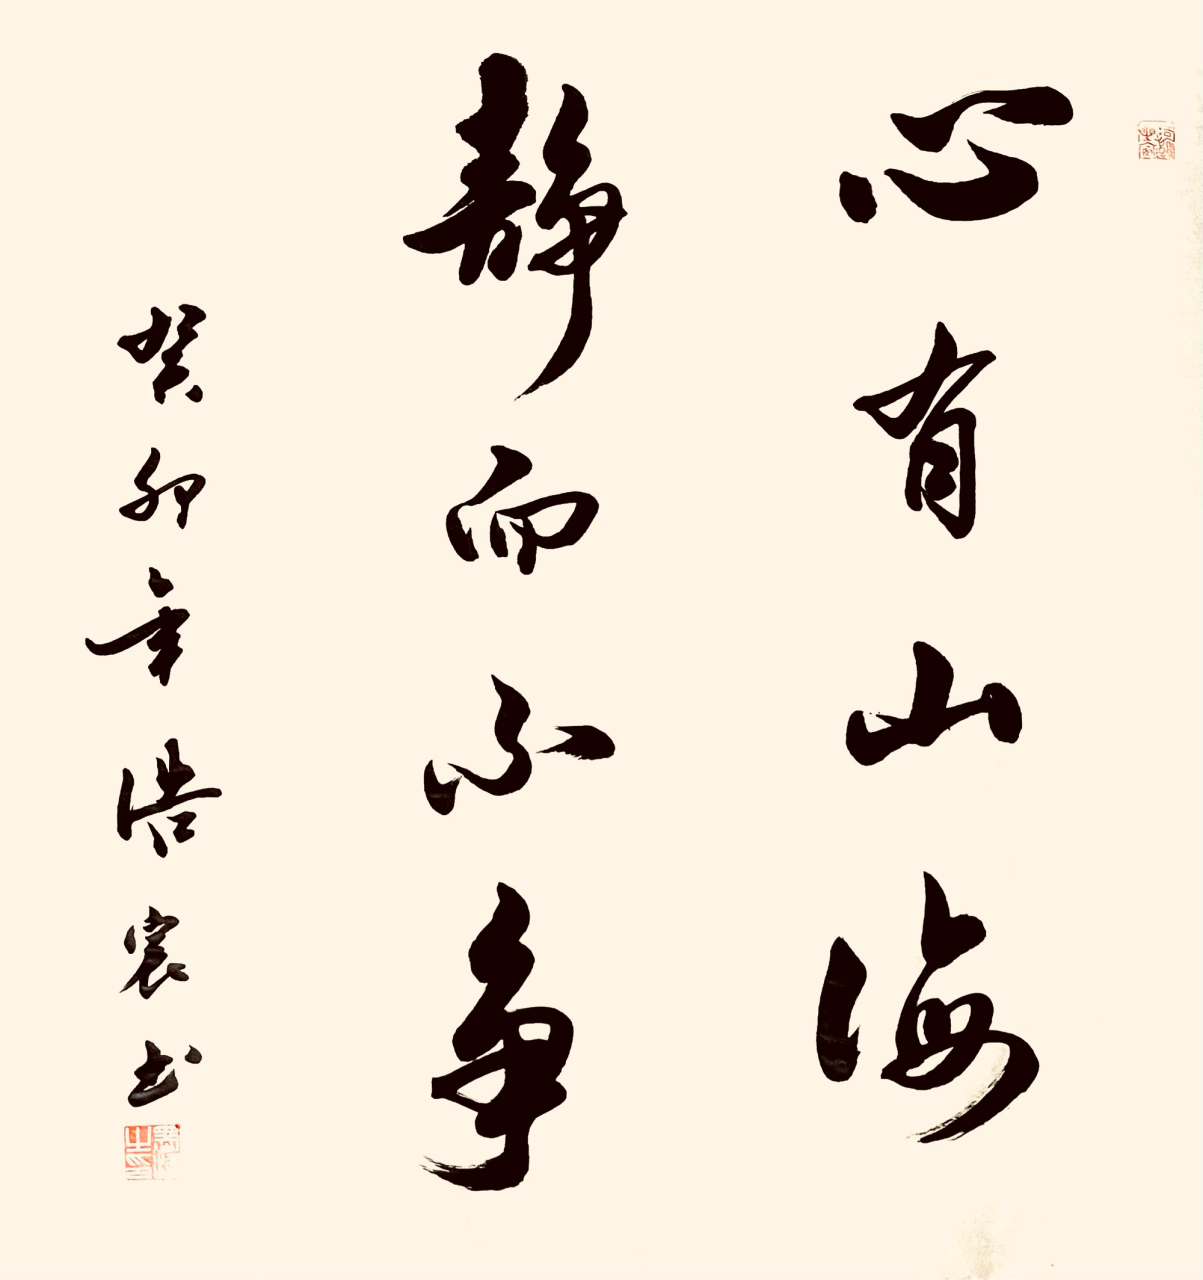 心有山海
静而不争
癸卯年浩宸书